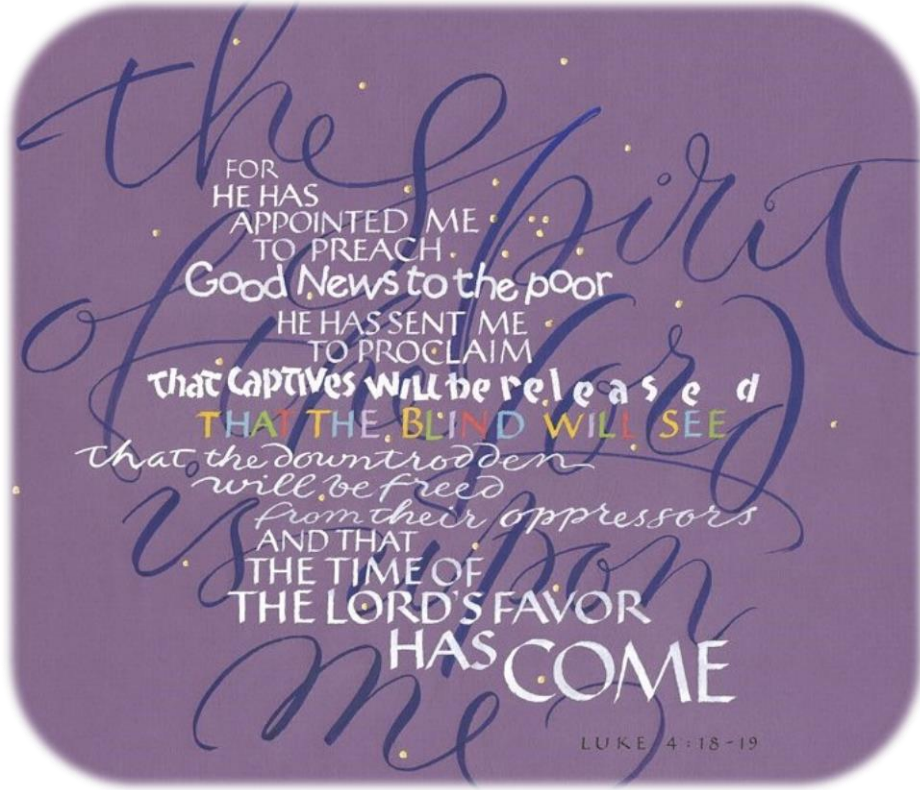 the Spirit
of the Lord
is upon
me
FOR
HE HAS
APPOINTED ME
TO PREACH
Good News to the poor
HE HAS SENT ME
TO PROCLAIM
that captives will be released
THAT THE BLIND WILL SEE
that the downtrodden
will be freed
from their oppressors
AND THAT
THE TIME OF
THE LORD'S FAVOR
HAS COME
LUKE 4:18-19